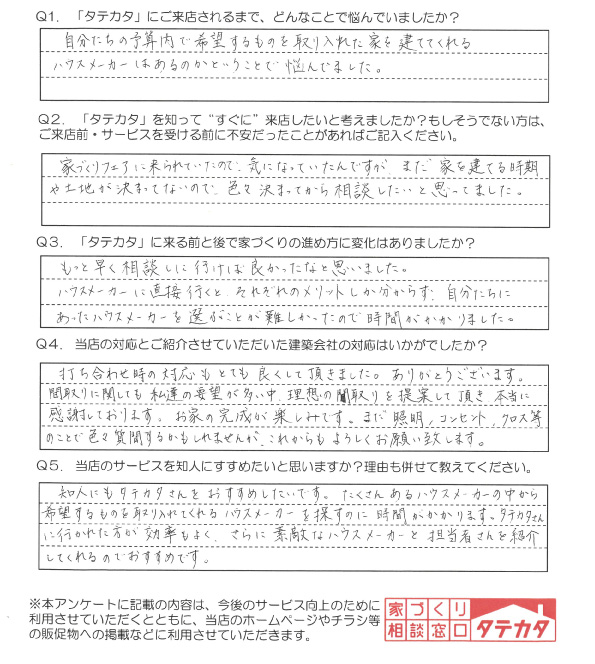 Q1. 「タテカタ」にご来店されるまで、どんなことで悩んでいましたか？
自分たちの予算内で希望するものを取り入れた家を建ててくれる
ハウスメーカーはあるのかということで悩んでました。
Q2. 「タテカタ」を知って“すぐに”来店したいと考えましたか？もしそうでない方は、
ご来店前・サービスを受ける前に不安だったことがあればご記入ください。
家づくりフェアに来られていたので、気になっていたんですが、まだ家を建てる時期
や土地が決まってないので、色々決まってから相談したいと思ってました。
Q3. 「タテカタ」に来る前と後で家づくりの進め方に変化はありましたか？
もっと早く相談しに行けば良かったなと思いました。
ハウスメーカーに直接行くと、それぞれのメリットしか分からず、自分たちに
あったハウスメーカーを選ぶことが難しかったので時間がかかりました。
Q4. 当店の対応とご紹介させていただいた建築会社の対応はいかがでしたか？
打ち合わせ時の対応もとても良くして頂きました。ありがとうございます。
間取りに関しても私達の要望が多い中、理想の間取りを提案して頂き本当に
感謝しております。お家の完成が楽しみです。まだ照明、コンセント、クロス等
のことで色々質問するかもしれませんが、これからもよろしくお願い致します。
Q5. 当店のサービスを知人にすすめたいと思いますか？理由も併せて教えてください。
知人にもタテカタさんをおすすめしたいです。たくさんあるハウスメーカーの中から
希望するものを取り入れてくれるハウスメーカーを探すのに時間がかかります。タテカタさん
に行かれた方が効率もよく、さらに素敵なハウスメーカーと担当者さんを紹介
してくれるのでおすすめです。
※本アンケートに記載の内容は、今後のサービス向上のために
利用させていただくとともに、当店のホームページやチラシ等
の販促物への掲載などに利用させていただきます。
家づくり
相談窓口 タテカタ